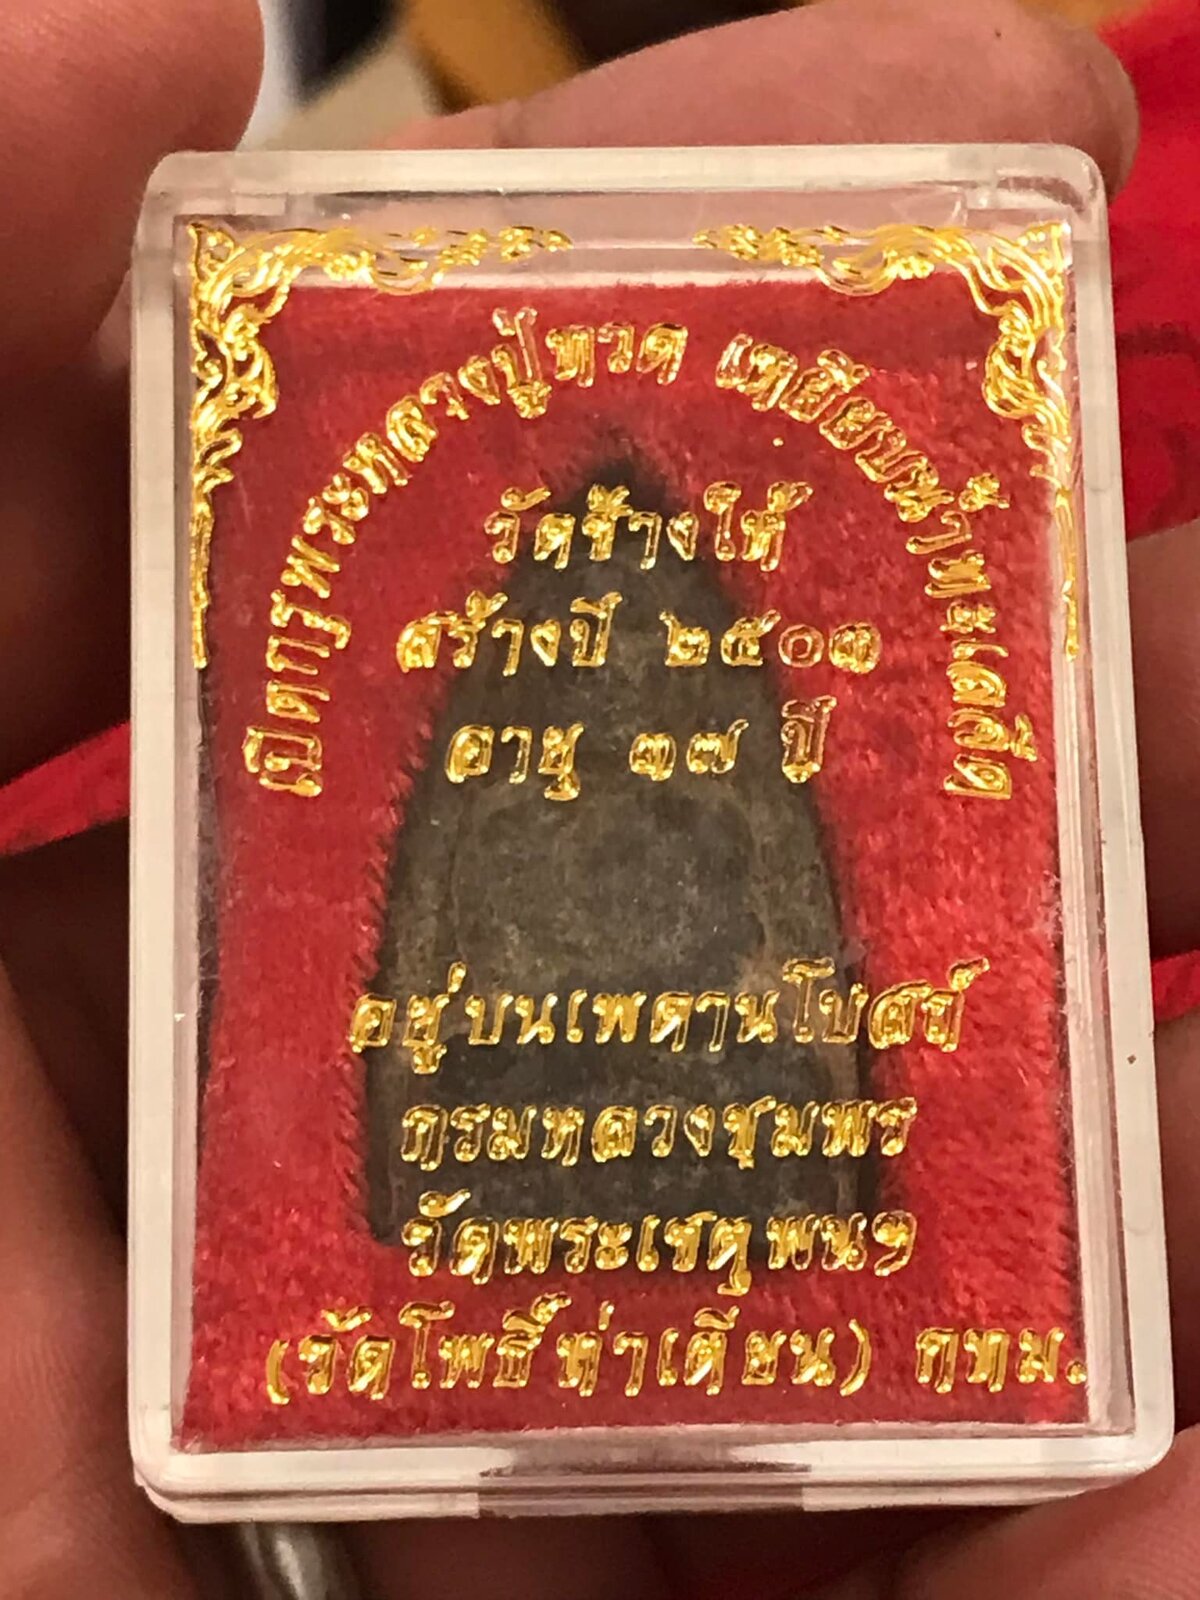 เปิดกรุพระหลวงปู่ทวด เหยียบน้ำทะเลจืด
วัดช้างให้
สร้างปี ๒๕๐๓
อายุ ๓๗ ปี
อยู่บนเพดานโบสถ์
กรมหลวงชุมพร
วัดพระเชตุพนฯ
(วัดโพธิ์ท่าเตียน) กทม.